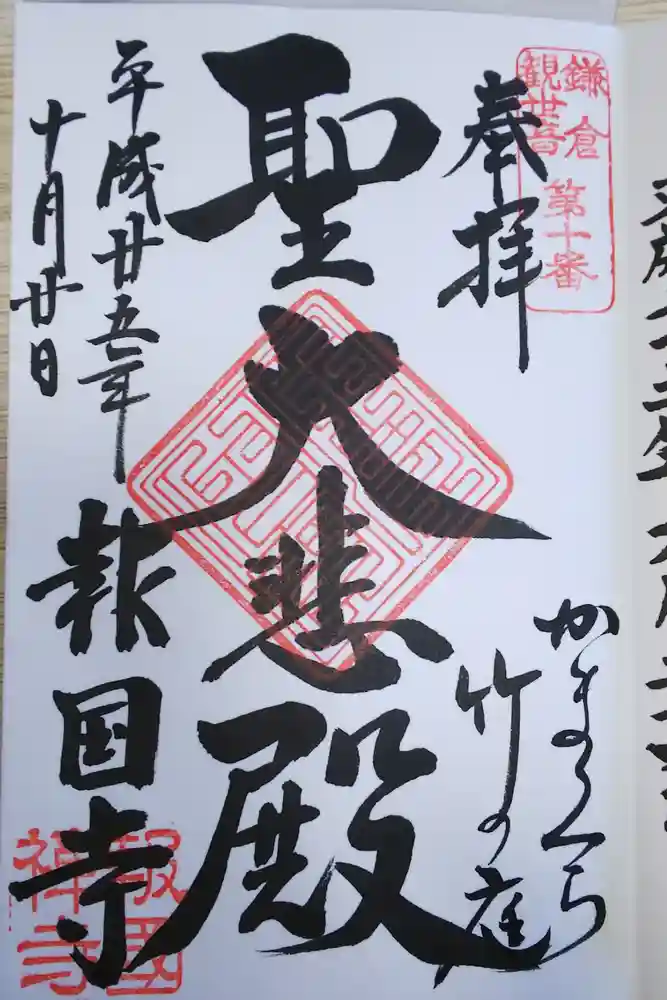 鎌倉
観世音
第十番
奉拝
かまくら
竹の庭
聖大悲殿
平成廿五年
十月廿日
報国寺
報國
禅寺